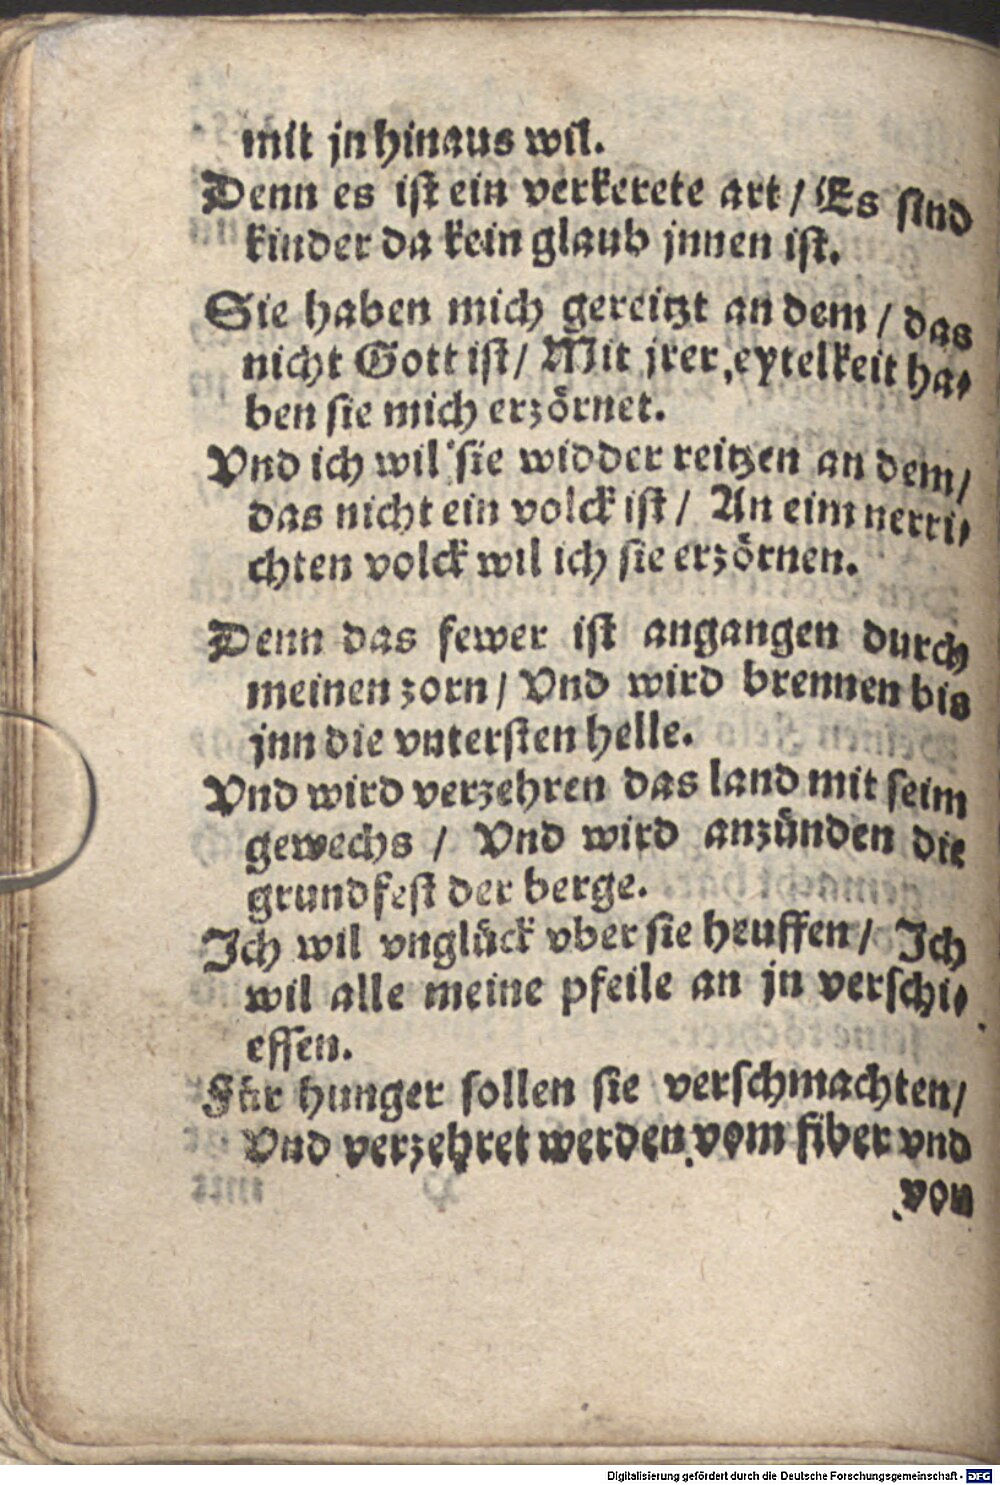 mit jn hinaus wil.
Denn es ist ein verkerete art / Es sind
kinder da kein glaub jnnen ist.
Sie haben mich gereitzt an dem / das
nicht Gott ist / Mit jrer eytelkeit ha-
ben sie mich erzörnet.
Vnd ich wil sie widder reitzen an dem /
das nicht ein volck ist / An eim nerri-
chten volck wil ich sie erzörnen.
Denn das fewer ist angangen durch
meinen zorn / Vnd wird brennen bis
jnn die vntersten helle.
Vnd wird verzehren das land mit seim
gewechs / Vnd wird anzünden die
grundfest der berge.
Ich wil vnglück vber sie heuffen / Ich
wil alle meine pfeile an jn verschi-
essen.
Für hunger sollen sie verschmachten /
Vnd verzehret werden vom fiber vnd
von
Digitalisierung gefördert durch die Deutsche Forschungsgemeinschaft - DFG